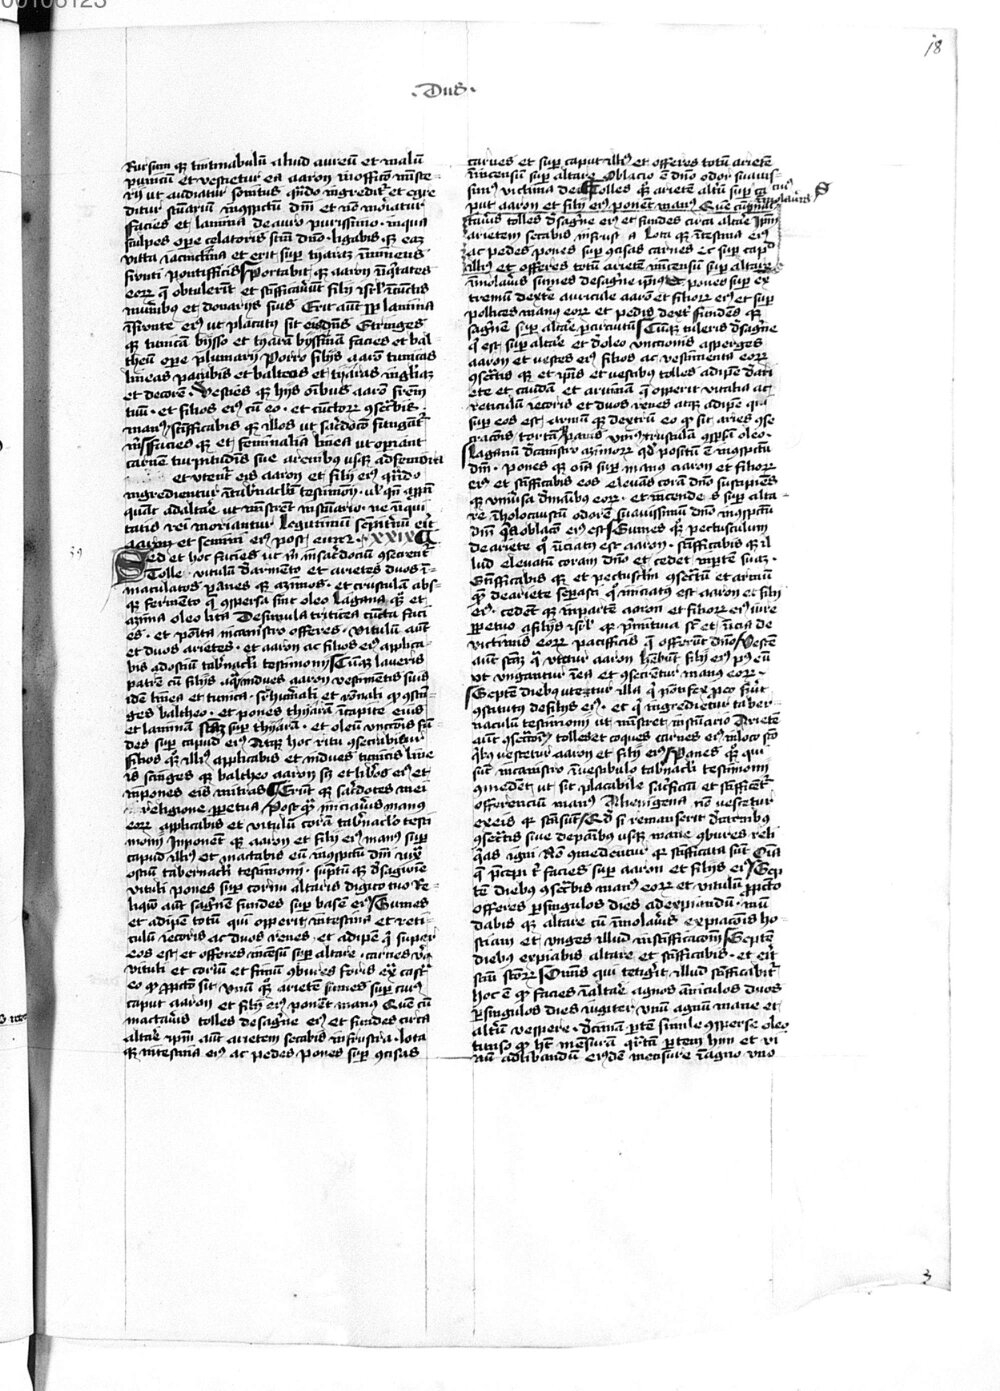 18
·Dns·
Rursum qz tintinabulū aliud aureū et malū
punicū et vestietur ea aaron in officō miste-
rij ut audiatur sonitus qn̄do ingreditᷣ et egre
ditur sc̄uariū in ꝯspctu dn̄i et nō moriatur
facies et lamina de auro purissimo · in qua
sculpes ope celatoris scm̄ dno · ligabis qz eaz
vitta iacinctina et erit sup thyarā īminens
fronti pontificis Portabit qz aaron iniqtates
eorz q̄ obtulerūt et sc̄ificauerūt filij isrl̄ in cūctis
munibus et donarijs suis Erit aūt sp lamina
in fronte eiꝰ ut placatus sit eis dn̄s Stringes
qz tunicā bysso et thyarā byssinā facies et bal
theū ope plumarij Porro filijs aarō tunicas
lineas pabis et baltheos et thyaras in gliaz
et decorē · Vesties qz hijs oībus aarō frem̄
tuū · et filios eiꝰ cū eo · et cūctorz ꝯscrabis
manꝰ sc̄ificabis qz illos ut sacdocō fungātᷣ
m Facies qz et feminalia linea ut operiant
carnem turpitudīs sue a renibus usqz ad femora
et utentᷣ eis aaron et filij eiꝰ qn̄do
ingredientur tabnaclm̄ testimonij · ul̄ qn̄ appn̄
quāt ad altare ut ministrēt in sc̄uario · ne iniqui
tatis rei moriantur Legitimū sempitnū erit
aaron et semini eiꝰ post eum · XXIX
Sed et hoc facies ut m in sacdociū ꝯsecrentᷣ
Tolle vitulū de armento et arietes duos ī-
maculatos panes qz azimos · et crustulā abs-
qz fermento q̄ ꝯspersa sint oleo Lagana qz et
azima oleo lita De simila triticea cūcta faci
es · et posita in canistro offeres · vitulū aūt
et duos arietes · et aaron ac filios eiꝰ applica-
bis ad ostiū tabnacli testimonij Cūqz laueris
patrē cū filijs aq̄ indues aaron vestimētis suis
idē linea et tunica · et sup hūerali et rōnali qd ꝯstrin-
ges baltheo · et pones thyarā in capite eius
et laminā scam̄ sup thyarā · et oleū unctōnis fū
des sup capud eiꝰ Atqz hoc ritu ꝯsecrabitur
filios qz illiꝰ applicabis et indues tunicis line
is cinges qz baltheo aaron sz et libos eiꝰ et
impones eis mitras Erūt qz sacdotes mei
religione perpetua Post q̄ iniciauis manus
eorz applicabis et vitulū corā tabnaclo testi
monij Inponēt qz aaron et filij eiꝰ manꝰ sup
capud illiꝰ et mactabis eū in ꝯspctu dn̄i iuxᵃ
ostiū tabernacli testimonij · sūptū qz de sāguine
vituli pones sup cornu altaris digito tuo Re-
liquū aūt sagnē fundes sup basem eiꝰ Sumes
et adipē totū qui opperit intestina et reti-
culū iecoris ac duos renes · et adipē q̄ super
eos est et offeres incensū sup altare · carnes vō
vituli et coriū et fimū ꝯbures foris exᵃ castᵃ
eo qd p pctō sit unū qz arietē sumes sup cuiꝰ
caput aaron et filij eiꝰ ponēt manus Quē cū
mactauis tolles de sagne eiꝰ et fundes circa
altare ipm̄ aūt arietem secabis in frustra · lota
qz intestina eiꝰ ac pedes pones sup ꝯcisas
carnes et sup caput illiꝰ et offeres totū arietē
in incensū sup altare Oblacio ē dno odor suauis-
simꝰ victime dei Tolles qz arietē altm̄ sup cuiꝰ ca
put aaron et filij eiꝰ ponent manꝰ Quē cū īmo
lauis tolles de sagne eiꝰ et fundes circa altare ipm̄
arietem secabis in frusta Lota qz intestina eiꝰ
ac pedes pones sup ꝯcisas carnes et sup capd
illiꝰ et offeres totū arietē incensum sup altare
īmolauis sumes de sagne ipiꝰ et pones sup ex
tremū dextre auricule aarō et filiorz eiꝰ et sup
pollices manus eorz et pedū dextᵃ fundes qz
sagnē sup altare p circuitū Cūqz tuleris de sagne
q̄ est sup altare et de oleo unctionis asperges
aaron et vestes eiꝰ filios ac vestimenta eorz
ꝯscratis qz et ip̄is et vestibus tolles adipē de ari
ete et caudā et aruinā q̄ opperit vitalia ac
reticulū iecoris et duos renes atqz adipē qui
sup eos est · armū qz dextrū eo qd sit aries ꝯse
cracōis tortā panis uniꝰ crustulā ꝯspsā oleo ·
Laganū de canistro azimorz qd positū ē in ꝯspctū
dn̄i · pones qz oīa sup manus aaron et filiorz
eiꝰ et sc̄ificabis eos eleuās corā dno suscipies
qz uniuersa de mānibus eorz · et incendes sup alta-
re in holocaustū odorē suauissimū dno in ꝯspctu
dn̄i q̄ oblacō eiꝰ est Sumes qz pectusculum
de ariete q̄ iniciatꝰ est aaron · sc̄ificabis qz il
lud eleuatū coram dno et cedet in ptem tuaz ·
Sc̄ificabis qz et pectusclm̄ ꝯsecratū et armū
quē de ariete sepasti q̄ iniciatus est aaron et filij
eiꝰ · cedēt qz in parte aaron et filiorz eiꝰ iure
ppetuo a filijs isrl̄ qz primitiua st̄ et inicia de
victimis eorz pacificis q̄ offerūt dno Vestē
aūt scām q̄ utetur aaron habebūt filij eiꝰ pꝰ eū
ut ungantur in ea et ꝯsecretur manus eorz ·
Septē diebus utetur illa q̄ pontifex p eo fuit
ꝯstitutꝰ de filijs eiꝰ · et q̄ ingredietur taber
naculū testimonij ut ministret in sc̄uario Arietē
aūt ꝯsecratōis tolles et coques carnes eiꝰ in loco scō
qbꝰ vescetur aaron et filij eiꝰ Panes qz qui
sūt in canistro in vestibulo tabnacli testimonij
ꝯmedent ut sit placabile sacficiū et sc̄ificētᷣ
offerenciū manꝰ Alienigena nō vescetur
ex eis qz sc̄i sūt Qd si remanserit de carnibus
ꝯsecratis siue de panibus usqz mane ꝯbures reli
q̄as igni Nō ꝯmedentur qz sc̄ificata sūt Oīa
q̄ pcepi t facies sup aaron et filijs eiꝰ Sep
tē diebus ꝯscrabis manꝰ eorz et vitulū p pctō
offeres p singulos dies ad expiandū · mū
dabis qz altare cū īmolauis expiacōis ho-
stiam et unges illud in sc̄ificacōem Septē
diebus expiabis altare et sc̄ificabis · et erit
scm̄ scōrz Omīs qui tetigit illud sc̄ificabitᷣ
Hoc ē qd facies in altare agnos āniculos duos
p singulos dies iugiter unū agnū mane et
altm̄ vespere · decimā ptē simile ꝯsperse oleo
tunso qd hēt mēsurā qrtā ptem hyn et vi
nū ad libandū eiusdē mensure in agno uno
3